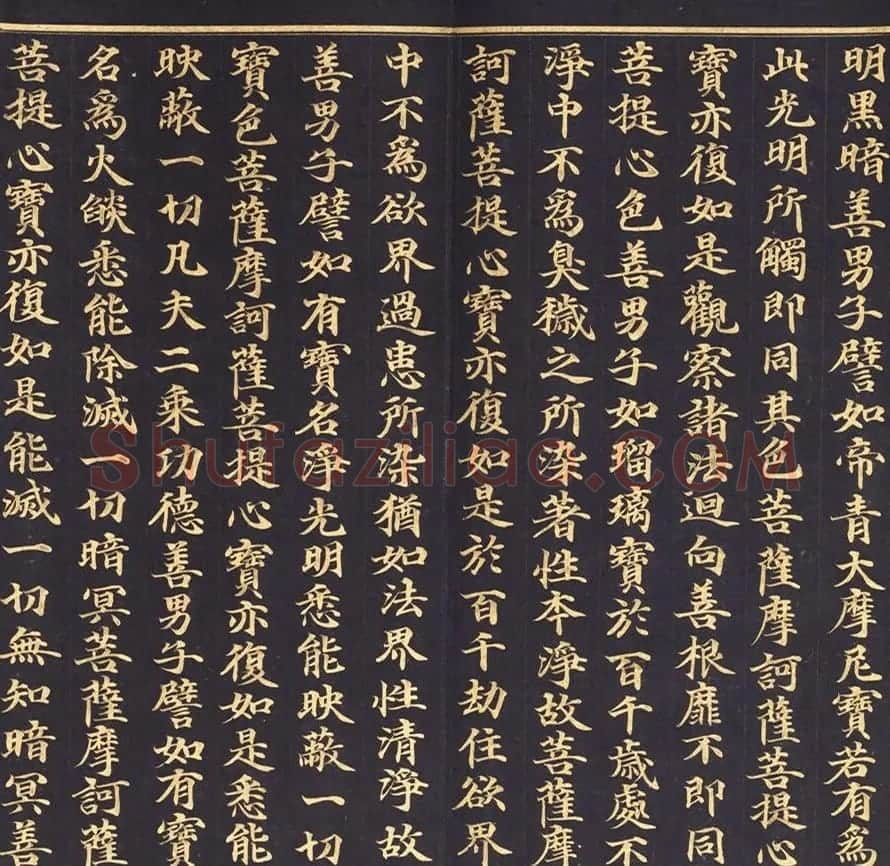 明黑暗善男子譬如帝青大摩尼寶若有爲
此光明所觸即同其色菩薩摩訶薩菩提心
寶亦復如是觀察諸法迴向善根靡不即同
菩提心色善男子如瑠璃寶於百千歲處不
淨中不爲臭穢之所染著性本淨故菩薩摩
訶薩菩提心寶亦復如是於百千劫住欲界
中不爲欲界過患所染猶如法界性清淨故
善男子譬如有寶名淨光明悉能映蔽一切
寶色菩薩摩訶薩菩提心寶亦復如是悉能
映蔽一切凡夫二乘功德善男子譬如有寶
名爲火燄悉能除滅一切暗冥菩薩摩訶薩
菩提心寶亦復如是能滅一切無知暗冥善
Shufaziliao.COM